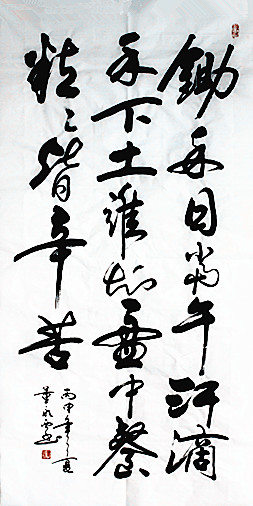 鋤禾日當午汗滴
禾下土誰知盤中餐
粒〻皆辛苦
丙申年之夏